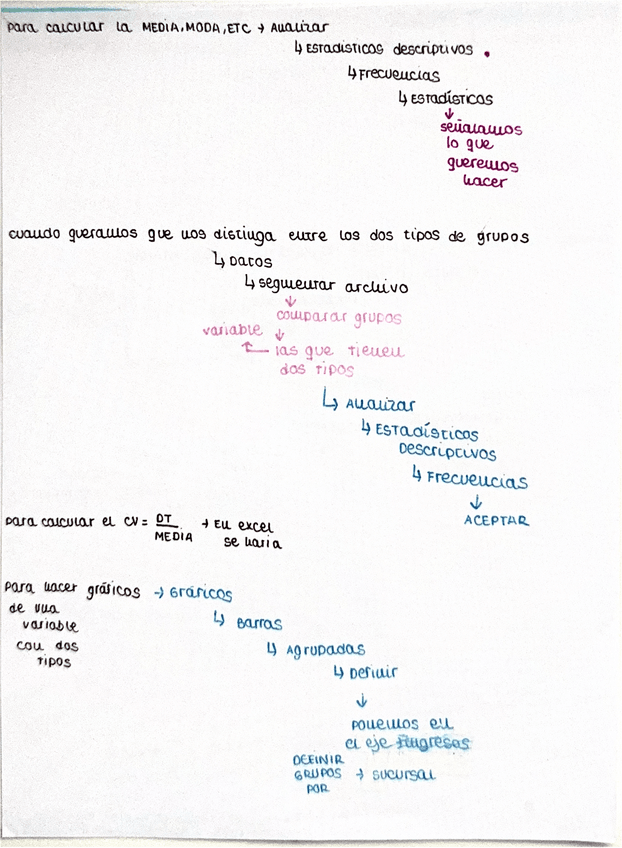 para calcular la MEDIA, MODA, ETC → Analizar
↳ ESTADÍSTICOS descriptivos.
↳ Frecuencias
↳ ESTADÍSTICOS
↓
señalamos
lo que
queremos
hacer
cuando queramos que nos distinga entre los dos tipos de grupos
↳ Datos
↳ segmentar archivo
↓
comparar grupos
variable ↓
← las que tienen
dos tipos
↳ Analizar
↳ ESTADÍSTICOS
Descriptivos
↳ Frecuencias
↓
ACEPTAR
para calcular el CV = DT / MEDIA → En excel
se haria
para hacer gráficos → Gráficos
de una
variable
con dos
tipos
↳ Barras
↳ Agrupadas
↳ Definir
↓
ponemos en
el eje Ingresos
DEFINIR
GRUPOS → sucursal
POR